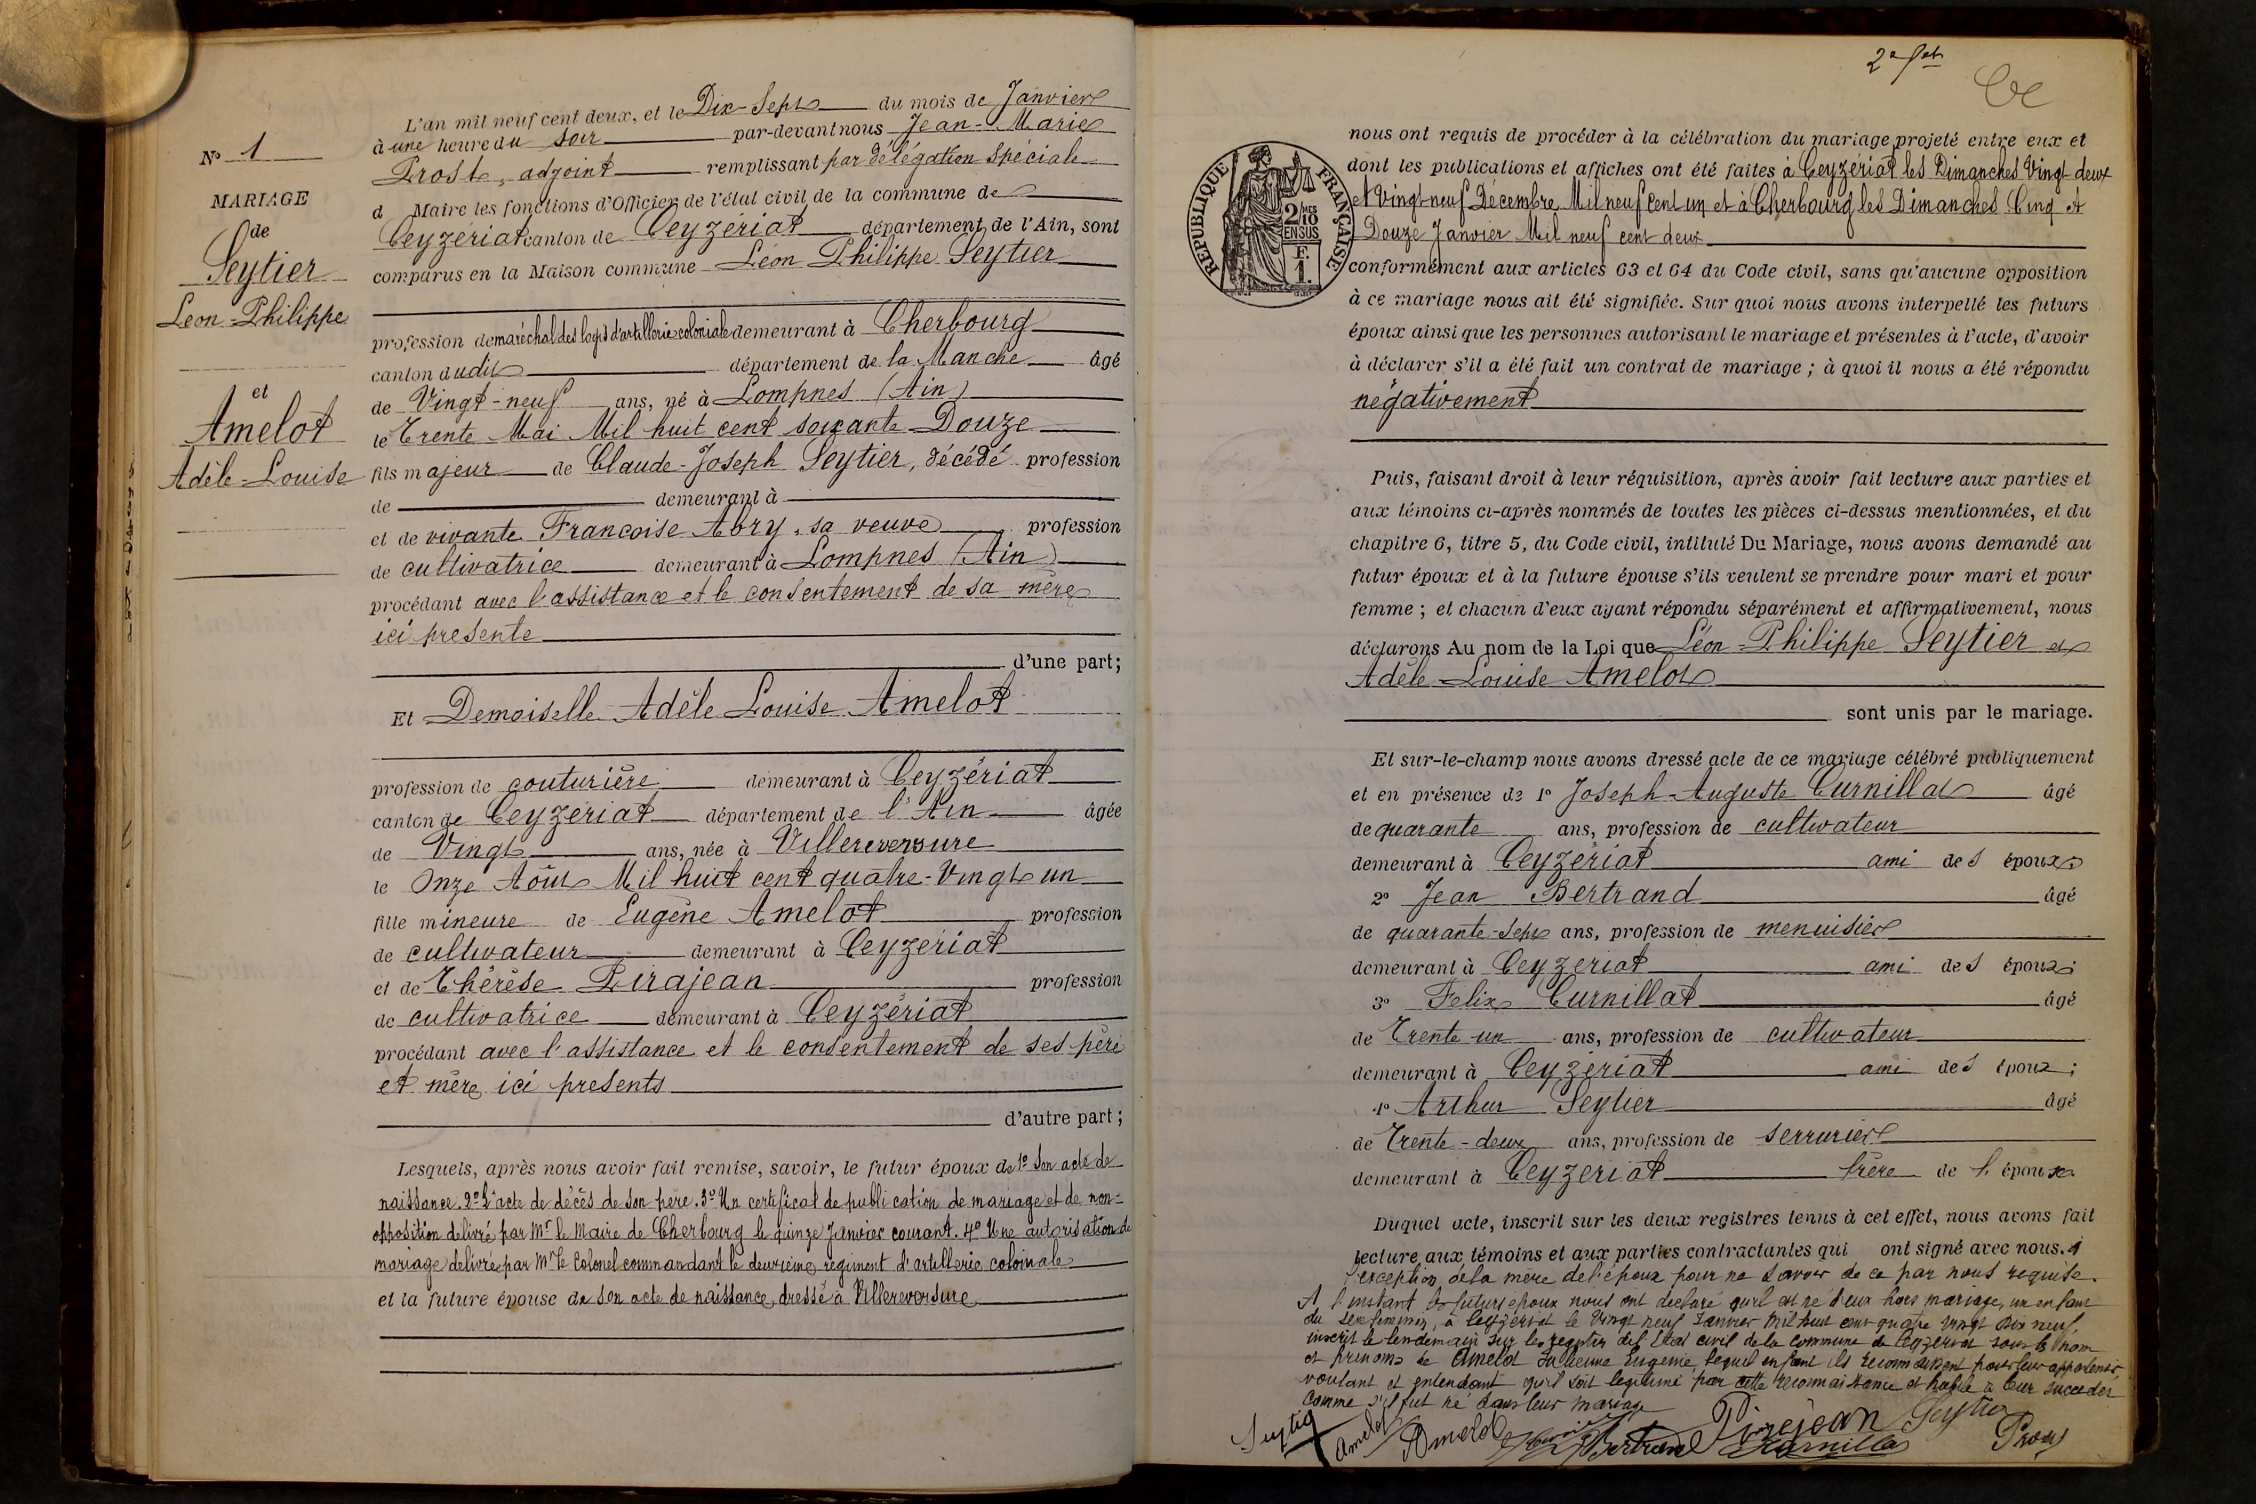 N° 1
MARIAGE
de
Seytier
Léon-Philippe
et
Amelot
Adèle-Louise
L'an mil neuf cent deux, et le Dix-Sept du mois de Janvier
à une heure du soir par-devant nous Jean-Marie
Prost, adjoint remplissant par délégation Spéciale
d Maire les fonctions d'Officier de l'état civil de la commune de
Ceyzériat canton de Ceyzériat département de l'Ain, sont
comparus en la Maison commune Léon Philippe Seytier
profession de maréchal des logis d'artillerie coloniale demeurant à Cherbourg
canton dudit département de la Manche âgé
de Vingt-neuf ans, né à Lompnes (Ain)
le Trente Mai Mil huit cent soixante Douze
fils majeur de Claude-Joseph Seytier, décédé profession
de demeurant à
et de vivante Francoise Abry, sa veuve profession
de cultivatrice demeurant à Lompnes (Ain)
procédant avec l'assistance et le consentement de sa mère
ici presente
d'une part;
Et Demoiselle Adèle Louise Amelot
profession de couturière demeurant à Ceyzériat
canton de Ceyzériat département de l'Ain âgée
de Vingt ans, née à Villereversure
le Onze Août Mil huit cent quatre-Vingt un
fille mineure de Eugène Amelot profession
de cultivateur demeurant à Ceyzériat
et de Thérèse Pirajean profession
de cultivatrice demeurant à Ceyzériat
procédant avec l'assistance et le consentement de ses père
et mère ici presents
d'autre part;
Lesquels, après nous avoir fait remise, savoir, le futur époux de 1° Son acte de
naissance. 2° L'acte de décès de son père. 3° Un certificat de publication de mariage et de non-
opposition delivré par Mr le Maire de Cherbourg le quinze Janvier courant. 4° Une autorisation de
mariage delivrée par Mr le Colonel commandant le deuxième régiment d'artillerie coloniale
et la future épouse de Son acte de naissance, dressé à Villereversure
2e
RÉPUBLIQUE FRANÇAISE
2/10MES
EN SUS
F.
1.
nous ont requis de procéder à la célébration du mariage projeté entre eux et
dont les publications et affiches ont été faites à Ceyzériat les Dimanches Vingt deux
et Vingt-neuf Décembre Mil neuf cent un et à Cherbourg les Dimanches Cinq et
Douze Janvier Mil neuf cent deux
conformément aux articles 63 et 64 du Code civil, sans qu'aucune opposition
à ce mariage nous ait été signifiée. Sur quoi nous avons interpellé les futurs
époux ainsi que les personnes autorisant le mariage et présentes à l'acte, d'avoir
à déclarer s'il a été fait un contrat de mariage ; à quoi il nous a été répondu
négativement
Puis, faisant droit à leur réquisition, après avoir fait lecture aux parties et
aux témoins ci-après nommés de toutes les pièces ci-dessus mentionnées, et du
chapitre 6, titre 5, du Code civil, intitulé Du Mariage, nous avons demandé au
futur époux et à la future épouse s'ils veulent se prendre pour mari et pour
femme ; et chacun d'eux ayant répondu séparément et affirmativement, nous
déclarons Au nom de la Loi que Léon-Philippe Seytier et
Adèle-Louise Amelot
sont unis par le mariage.
Et sur-le-champ nous avons dressé acte de ce mariage célébré publiquement
et en présence de 1° Joseph-Auguste Curnillat âgé
de quarante ans, profession de cultivateur
demeurant à Ceyzériat ami des époux;
2° Jean Bertrand âgé
de quarante-sept ans, profession de menuisier
demeurant à Ceyzériat ami des époux;
3° Felix Curnillat âgé
de Trente-un ans, profession de cultivateur
demeurant à Ceyzériat ami des époux;
4° Arthur Seytier âgé
de Trente-deux ans, profession de serrurier
demeurant à Ceyzériat frère de l'époux.
Duquel acte, inscrit sur les deux registres tenus à cet effet, nous avons fait
lecture aux témoins et aux parties contractantes qui ont signé avec nous. à
l'exception de la mère de l'époux pour ne savoir de ce par nous requise.
A l'instant les futurs epoux nous ont declaré qu'il est né d'eux hors mariage, un enfant
du sexe feminin, à Ceyzeriat le Vingt neuf Janvier mil huit cent quatre vingt dix neuf,
inscrit le lendemain sur les registres de l'Etat civil de la commune de Ceyzeriat sous le nom
et prenoms de Amelot Julienne Eugenie, lequel enfant ils reconnaissent pour leur appartenir,
voulant et entendant qu'il soit legitimé par cette reconnaissance et habile à leur succeder
comme s'il fut né dans leur mariage
Seytier Amelot Amelot Bertrand Pirajean Curnillat Seytier Prost